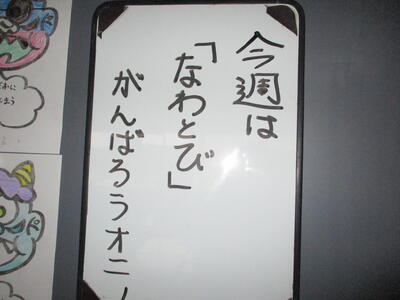 今週は
「なわとび」
がんばるうオニ